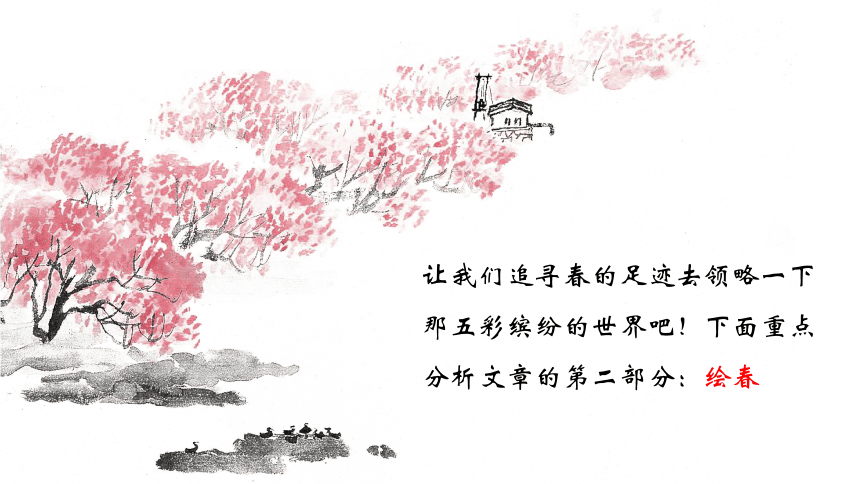 让我们追寻春的足迹去领略一下
那五彩缤纷的世界吧！下面重点
分析文章的第二部分：绘春